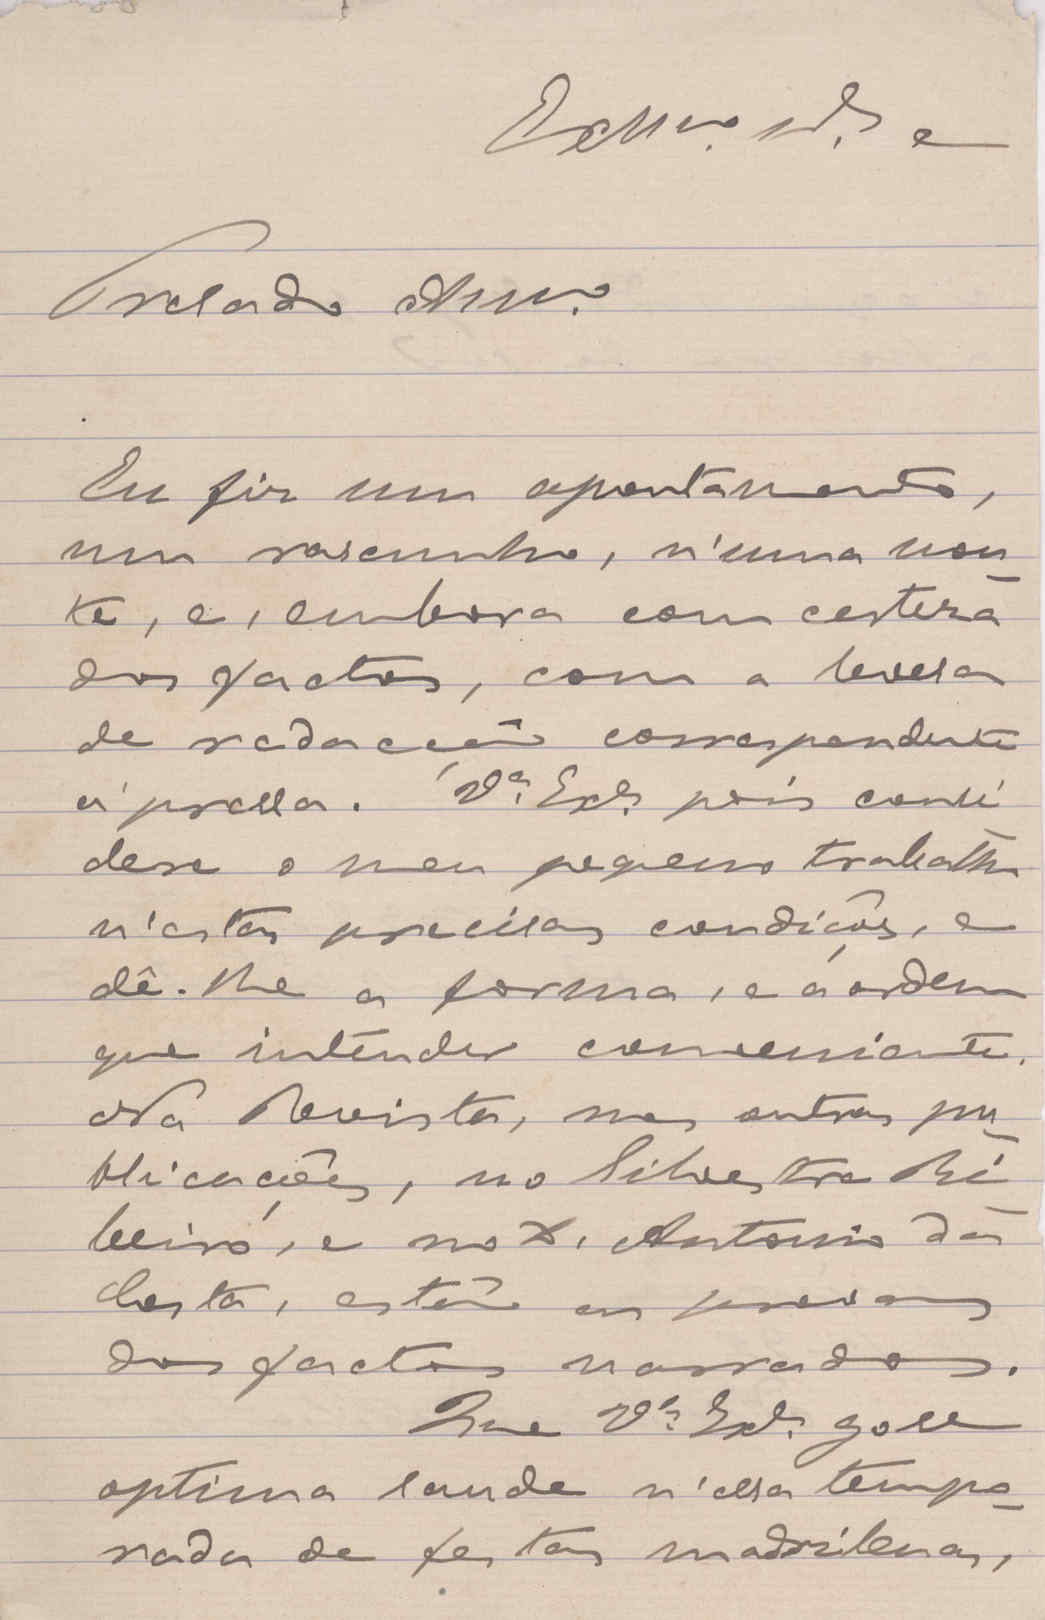 Exmo. Sr. e
Prelado Amo.
Eu fiz um apontamento,
um rascunho, n'uma nou-
te, e, embora com certeza
dos factos, com a leveza
de redacção correspondente
á pressa. Va. Exa. pois consi
dere o meu pequeno trabalho
n'estas precisas condições, e
dê-lhe a forma, e a ordem
que intender conveniente.
Na Revista, nas outras pu-
blicações, no Silvestre Ri-
beiro, e no D. Antonio da
Costa, estão as provas
dos factos narrados.
Que Va. Exa. gose
optima saude n'essa tempo-
rada de festas madrilenas,